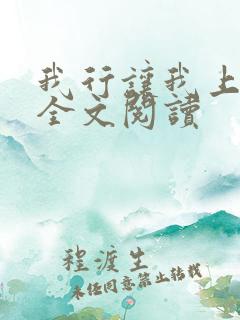 我行讓我上
全文閱讀
程渡生
未经同意禁止转载